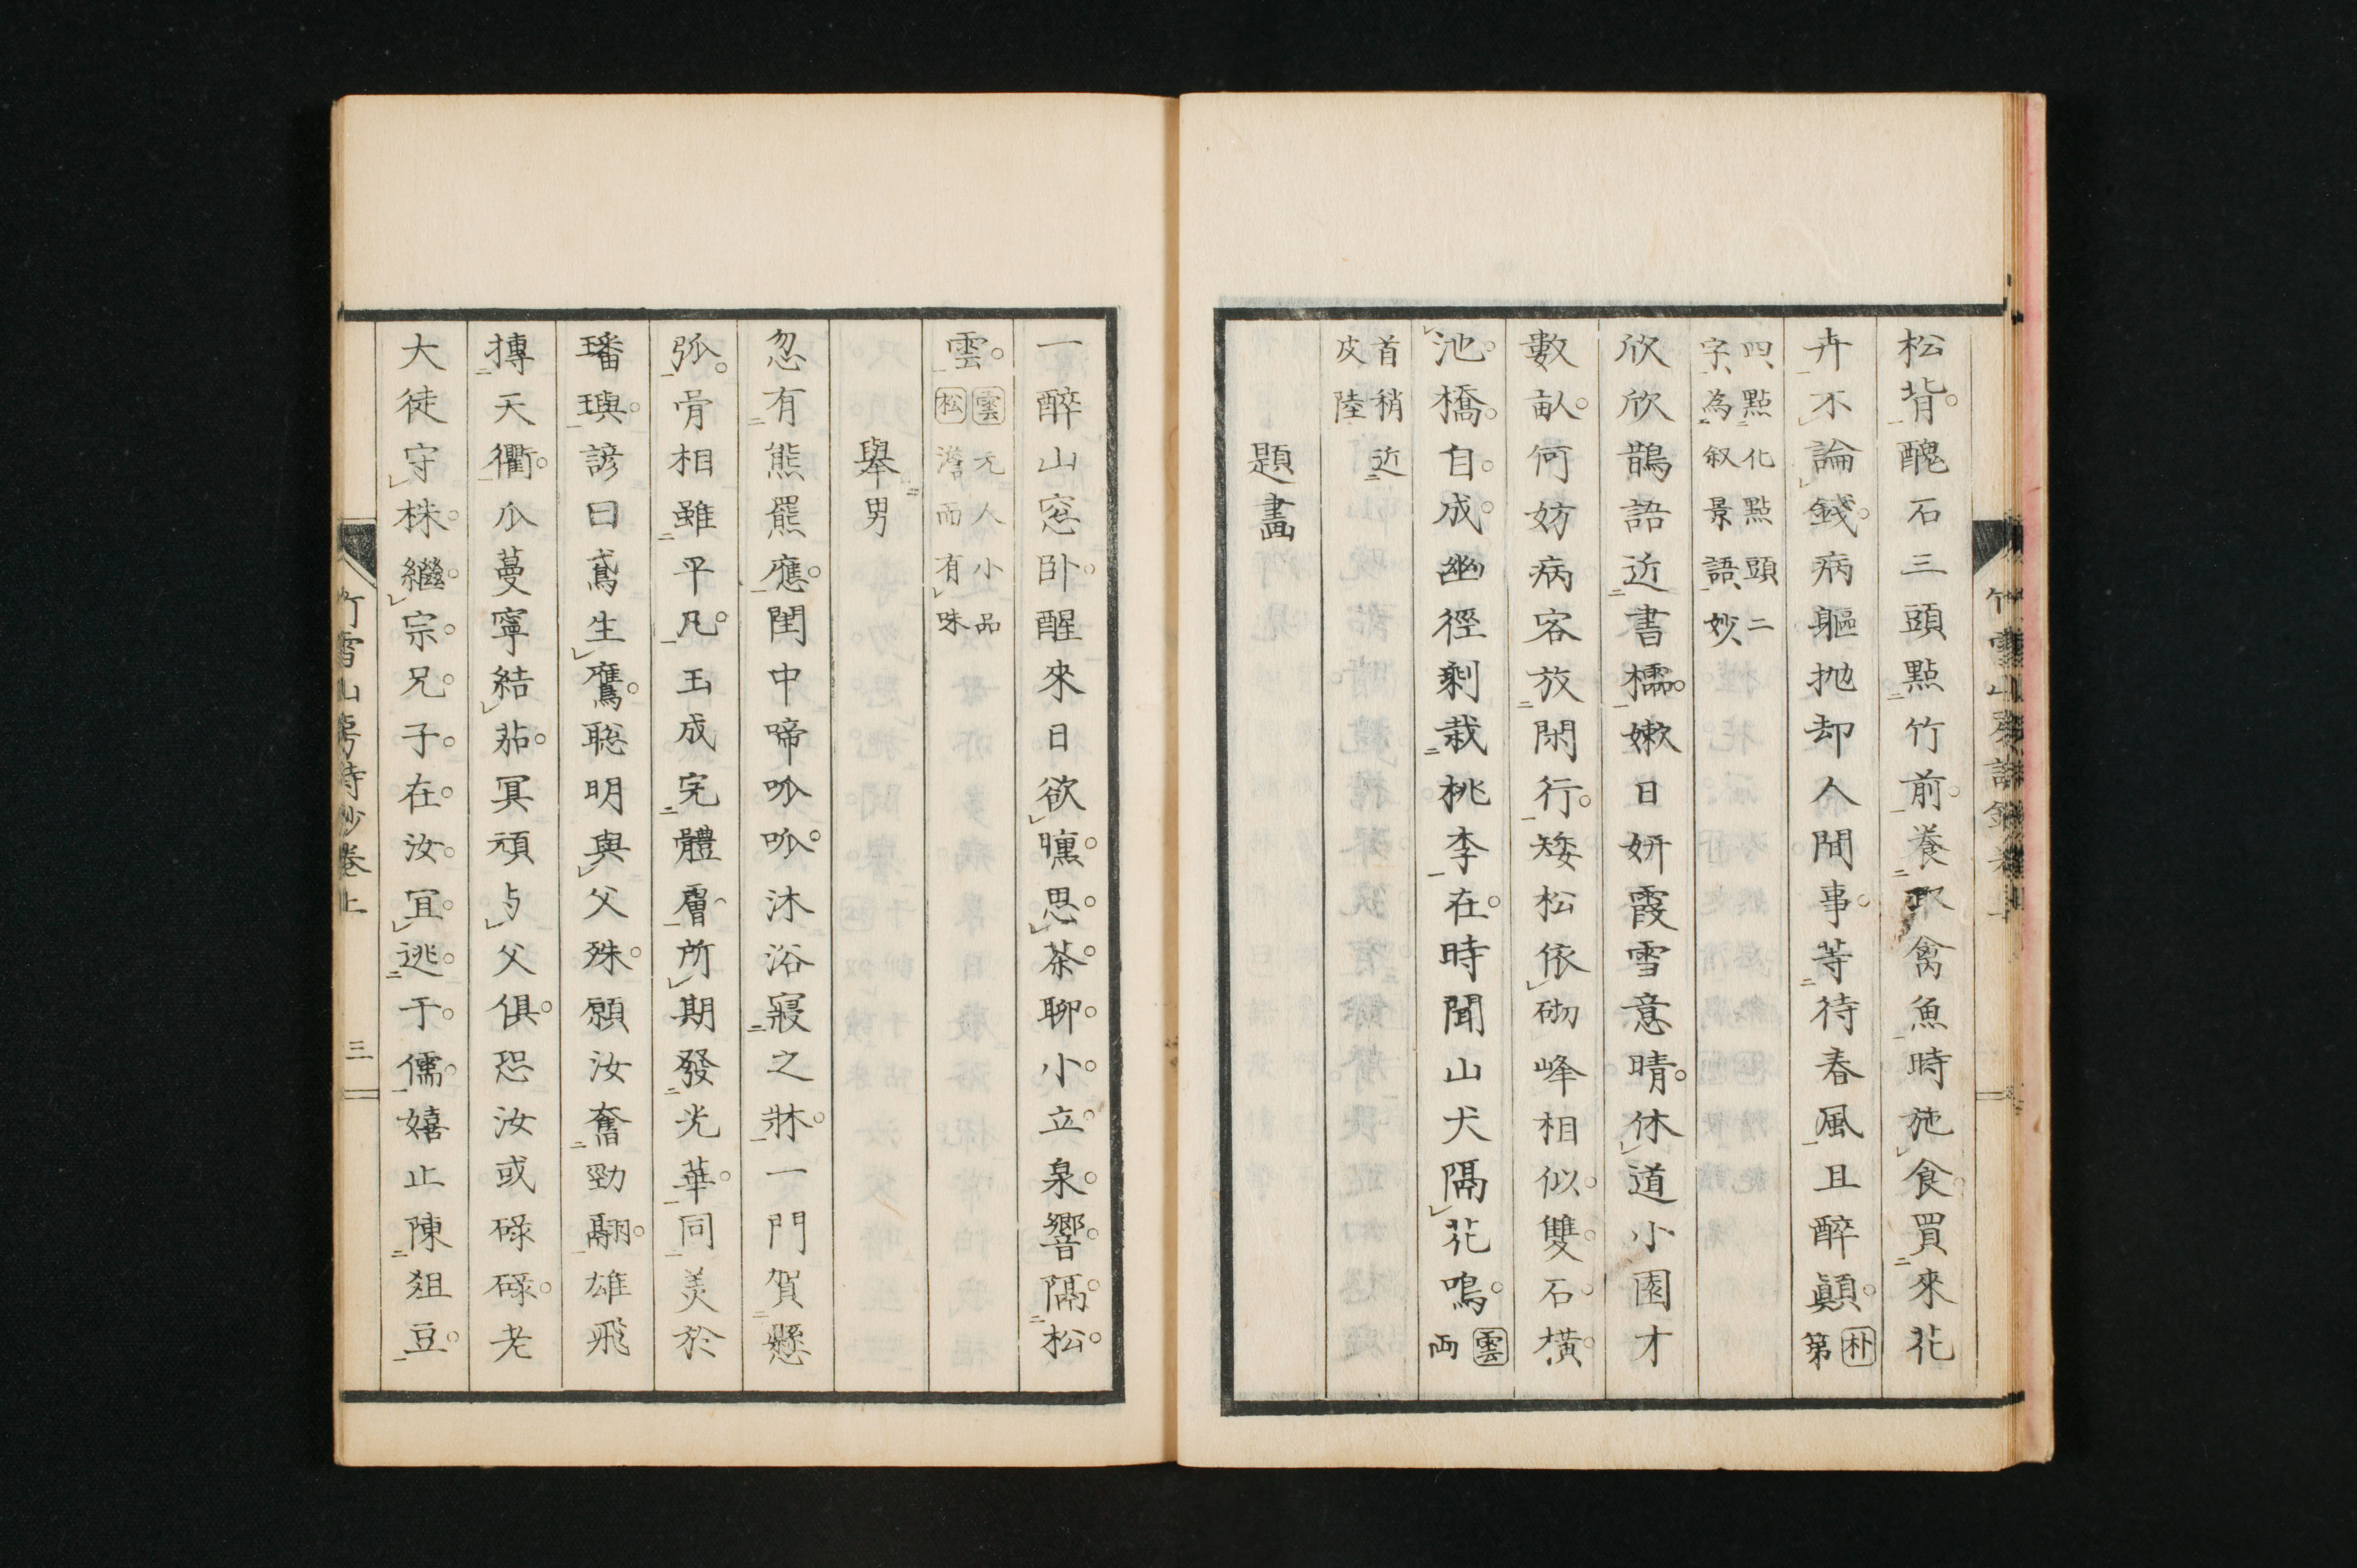 松背醜石三頭點竹前養取禽魚時施食買來花
卉不論錢病軀抛却人間事等待春風且醉顛朴第
四點化點頭二
字為叙景語妙
欣欣鵲語近書櫺嫩日妍霞雪意晴休道小園才
數畝何妨病客放閑行矮松依砌峰相似雙石橫
池橋自成幽徑剩栽桃李在時聞山犬隔花鳴雲両
首稍近
皮陸
題畫
一醉山窓卧醒來日欲曛思茶聊小立泉響隔松
雲雲元人小品
松澹而有味
舉男
忽有熊羆應閨中啼呱呱沐浴寢之牀一門賀懸
弧骨相雖平凡玉成完體膚所期發光華同美於
璠璵諺曰鳶生鷹聡明與父殊願汝奮勁翮雄飛
摶天衢瓜蔓寧結茄冥頑与父俱恐汝或碌碌老
大徒守株繼宗兄子在汝冝逃于儒嬉止陳俎豆
竹雪山房詩鈔卷上
三